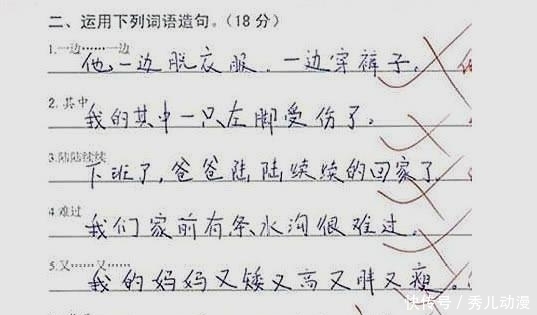 二、运用下列词语造句。(18分)
1.一边……一边
他一边脱衣服,一边穿裤子。
2.其中
我的其中一只左脚受伤了。
3.陆陆续续
下班了,爸爸陆陆续续的回家了
4.难过
我们家前有条水沟很难过。
5.又……又……
我的妈妈又矮又高又胖又瘦。
快传号/秀儿动漫